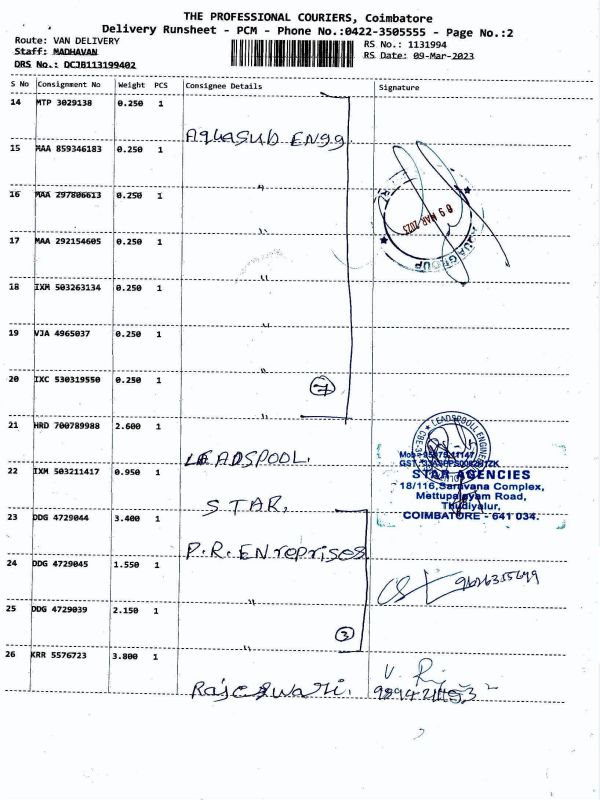 THE PROFESSIONAL COURIERS, Coimbatore
Delivery Runsheet - PCM - Phone No.:0422-3505555 - Page No.:2
Route: VAN DELIVERY
Staff: MADHAVAN
DRS No.: DCJB113199402
RS No.: 1131994
RS Date: 09-Mar-2023
S No Consignment No Weight PCS Consignee Details Signature
14 MTP 3029138 0.250 1
Aquasub Engg
15 MAA 859346183 0.250 1
"
16 MAA 297806613 0.250 1
"
17 MAA 292154605 0.250 1
"
18 IXM 503263134 0.250 1
"
19 VJA 4965037 0.250 1
"
20 IXC 530319550 0.250 1
7
09 MAR 2023
AQUAGROUP
21 HRD 700789988 2.600 1
LEADSPOOL.
LEADSPOOL ENGINEER
22 IXM 503211417 0.950 1
STAR.
STAR AGENCIES
18/116, Saravana Complex,
Mettupalayam Road,
Thudiyalur,
COIMBATORE - 641 034.
23 DDG 4729044 3.400 1
P.R. Enreprises
24 DDG 4729045 1.550 1
"
25 DDG 4729039 2.150 1
3
26 KRR 5576723 3.800 1
Rajeswari.